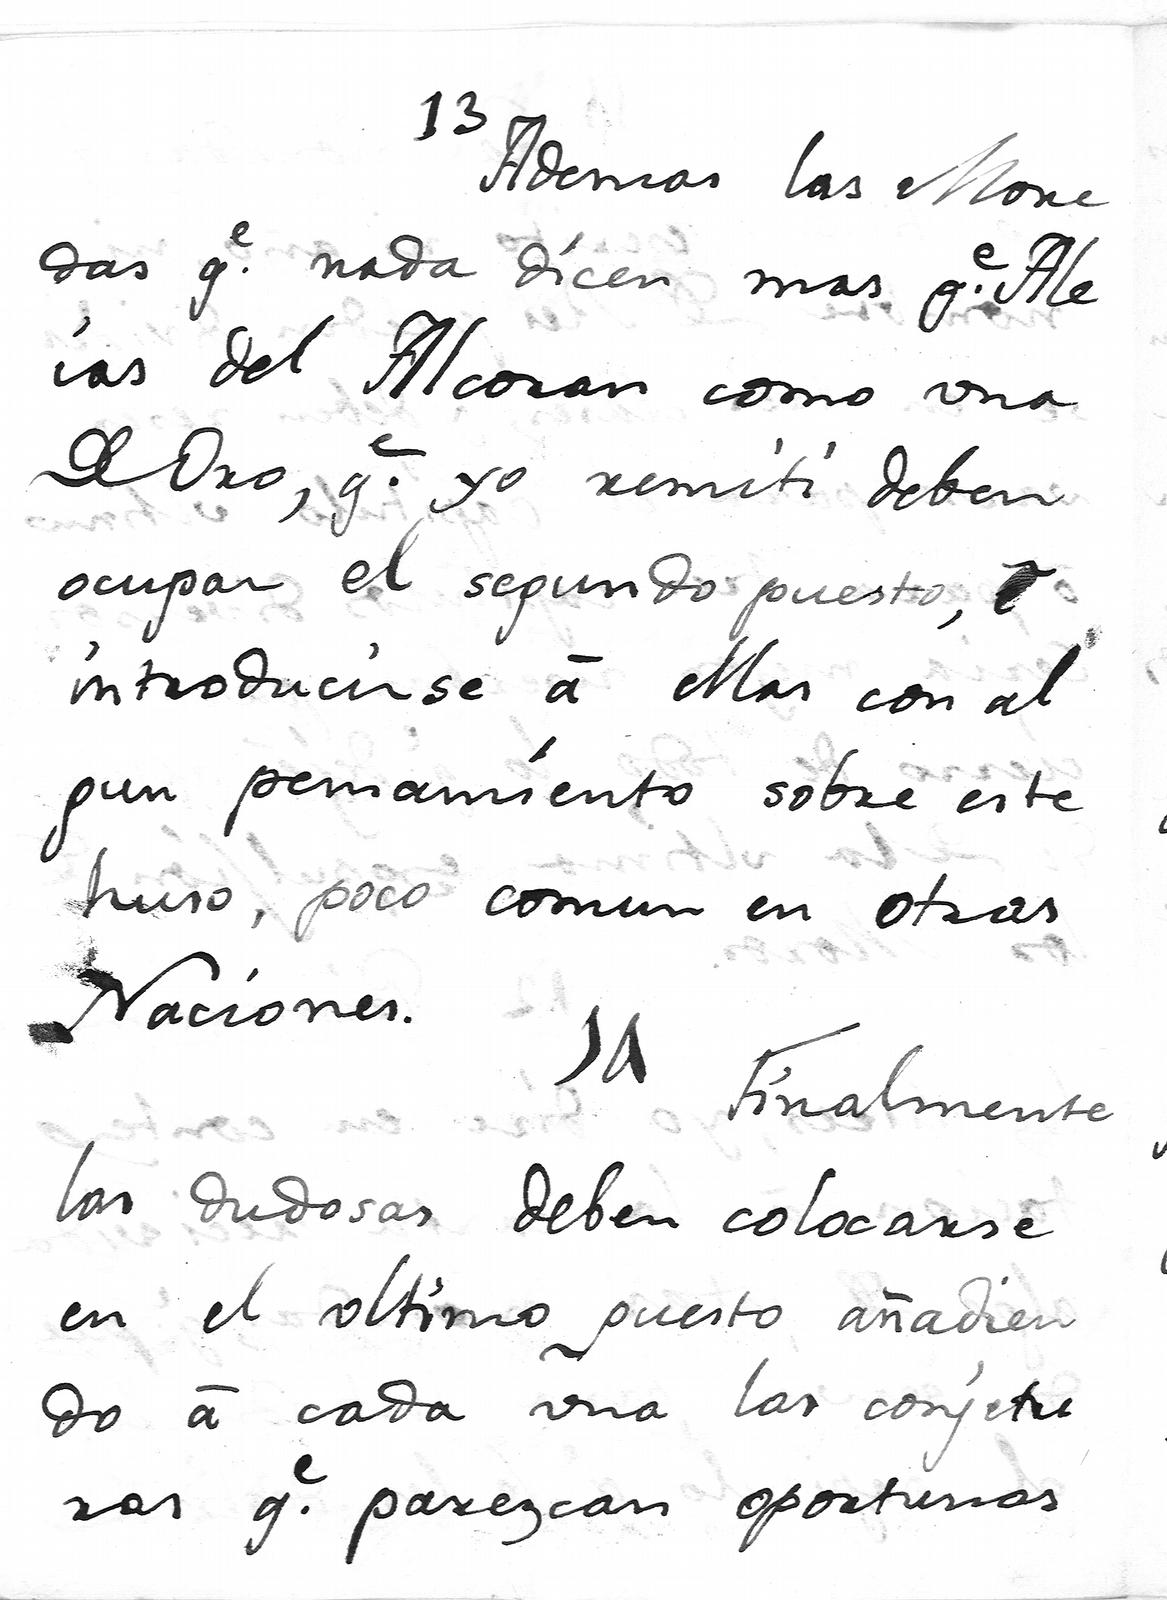 13
Ademas las Mone
das q.e nada dicen mas q.e Ale
ias del Alcoran como vna
De Oro, q.e yo remiti deben
ocupar el segundo puesto, é
introducirse ā ellas con al
gun pensamiento sobre este
huso, poco comun en otras
Naciones.
14
Finalmente
las dudosas deben colocarse
en el vltimo puesto añadien
do ā cada vña las conjetu
ras q.e parezcan oportunas